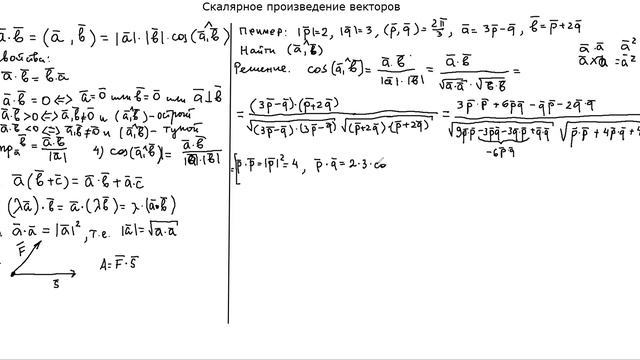 Скалярное произведение векторов
a̅·b̅ = (a̅, b̅) = |a̅|·|b̅|·cos(a̅,^b̅)
войства:
a̅·b̅ = b̅·a̅
a̅·b̅ = 0 <=> a̅ = 0̅ или b̅ = 0̅ или a̅⊥b̅
a̅·b̅>0 <=> a̅,b̅≠0̅ и (a̅,^b̅) - острый
a̅·b̅<0 <=> a̅,b̅≠0̅ и (a̅,^b̅) - тупой
пр_a̅ b̅ = a̅·b̅ / |a̅|   4) cos(a̅,^b̅) = a̅·b̅ / |a̅|·|b̅|
a̅(b̅+c̅) = a̅·b̅ + a̅·c̅
(λa̅)·b̅ = a̅·(λb̅) = λ·(a̅·b̅)
a̅·a̅ = |a̅|², т.е. |a̅| = √(a̅·a̅)
F̅
s̅
A = F̅·s̅
Пример: |p̅|=2, |q̅|=3, (p̅,^q̅) = 2π/3, a̅ = 3p̅-q̅, b̅ = p̅+2q̅
Найти (a̅,^b̅)
a̅·a̅   a̅²
a̅×a̅ = a̅²
Решение. cos(a̅,^b̅) = a̅·b̅ / |a̅|·|b̅| = a̅·b̅ / √(a̅·a̅)·√(b̅·b̅) =
= (3p̅-q̅)·(p̅+2q̅) / √((3p̅-q̅)·(3p̅-q̅)) √((p̅+2q̅)·(p̅+2q̅)) = 3p̅·p̅ + 6p̅q̅ - q̅p̅ - 2q̅·q̅ / √(9p̅p̅-3p̅q̅-3q̅·p̅+q̅·q̅) √(p̅·p̅ + 4p̅·q̅ +4
-6p̅q̅
= [p̅·p̅ = |p̅|² = 4, p̅·q̅ = 2·3·co